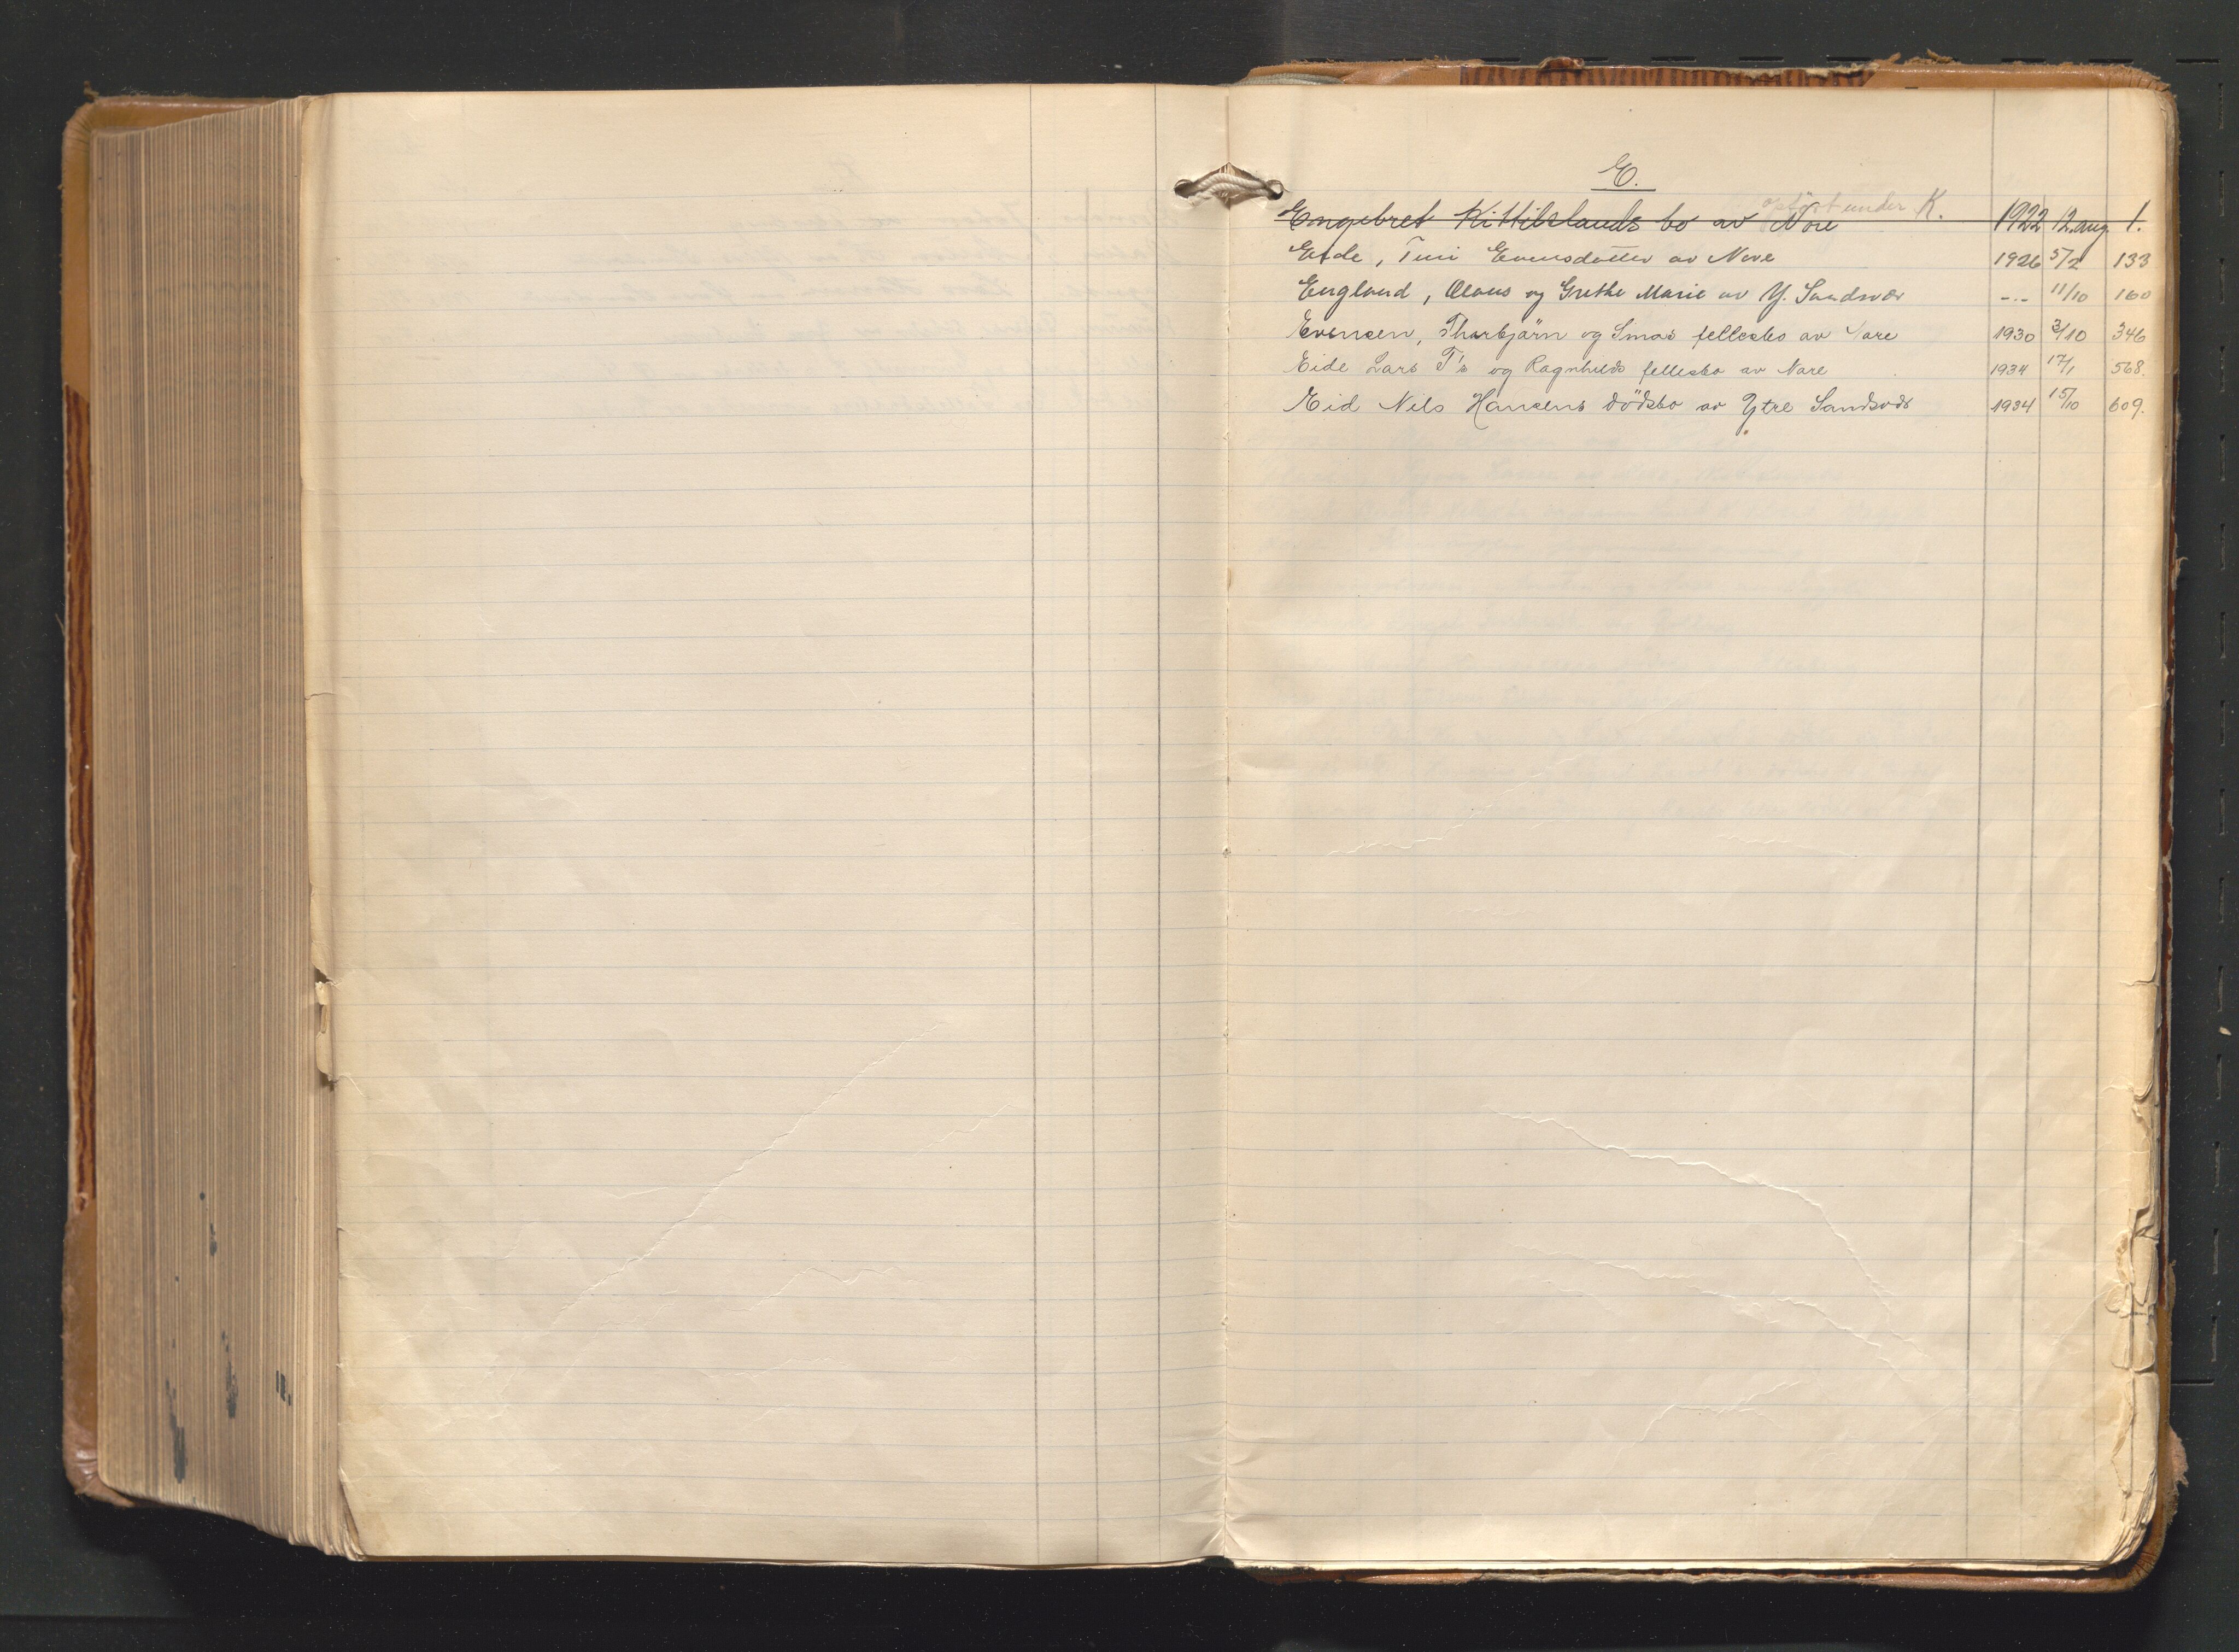 E.
opført under K.
Engebret Kittilslands bo av Nore 1922 12. aug. 1.
Eide, Turi Evensdatter av Nore 1926 5/2 133
England, Olaus og Grethe Marie av Y. Sandsvær -.- 11/10 160
Evensen, Thorbjørn og Smås fellesbo av Nore 1930 3/10 346
Eide Lars T's og Ragnhilds fellesbo av Nore 1934 17/1 568.
Eid Nils Hansens dödsbo av Ytre Sandsvær 1934 15/10 609.